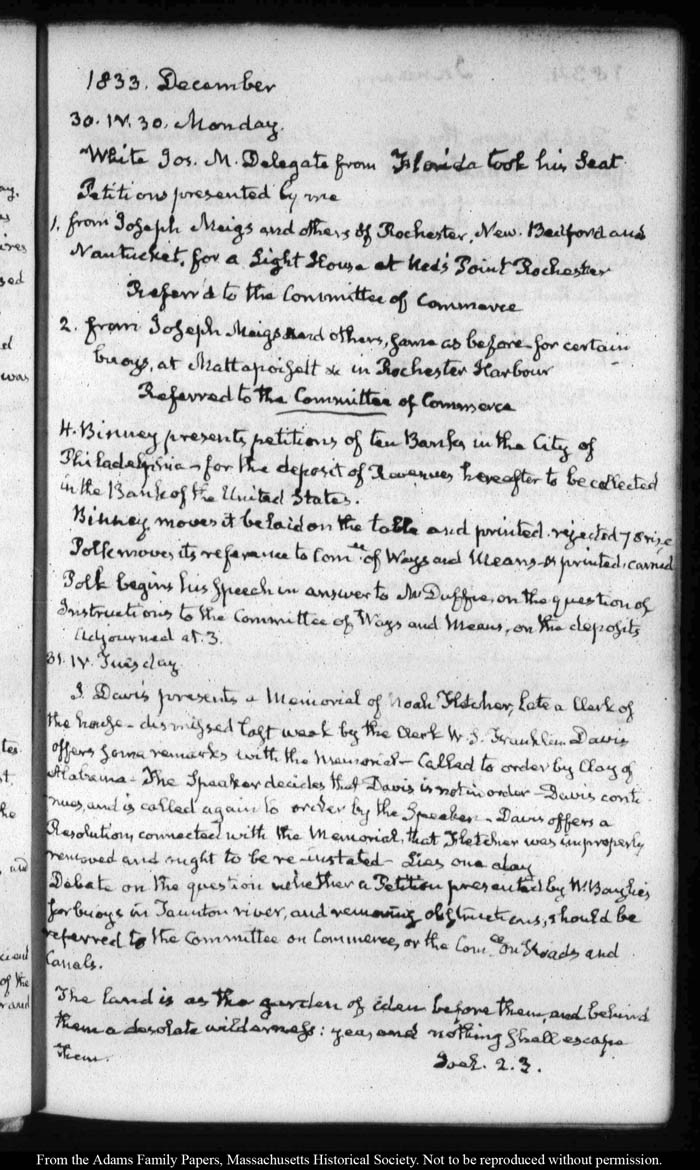 1833. December
30. IV. 30. Monday.
White Jos. M. Delegate from Florida took his Seat
Petitions presented by me
1. from Joseph Meigs and others of Rochester, New-Bedford and
Nantucket, for a Light House at Ned's Point Rochester
Referr'd to the Committee of Commerce
2. from Joseph Meigs and others, same as before—for certain
buoys, at Mattapoisett &c in Rochester Harbour
Referred to the Committee of Commerce
H. Binney presents petitions of ten Banks in the City of
Philadelphia—for the deposit of Revenues hereafter to be collected
in the Bank of the United States.
Binney moves it be laid on the table and printed. rejected 78 rise
Polk moves its reference to Com.ee of Ways and Means—& printed, carried
Polk begins his Speech in answer to McDuffie, on the question of
Instructions to the Committee of Ways and Means, on the deposits
Adjourned at 3.
31. IV. Tuesday
J Davis presents a Memorial of Noah Fletcher, late a Clerk of
the house—dismissed last week by the Clerk W. S. Franklin. Davis
offers some remarks with the Memorial—Called to order by Clay of
Alabama—The Speaker decides that Davis is not in order—Davis conti
nues, and is called again to order by the Speaker—Davis offers a
Resolution connected with the Memorial, that Fletcher was improperly
removed and ought to be re-instated—Lies one day
Debate on the question whether a Petition presented by W. Baylies
for buoys in Taunton river, and removing obstructions, should be
referred to the Committee on Commerce, or the Com.ee on Roads and
Canals.
The land is as the garden of Eden before them, and behind
them a desolate wilderness: yea, and nothing shall escape
them.
Joel. 2.3.
From the Adams Family Papers, Massachusetts Historical Society. Not to be reproduced without permission.